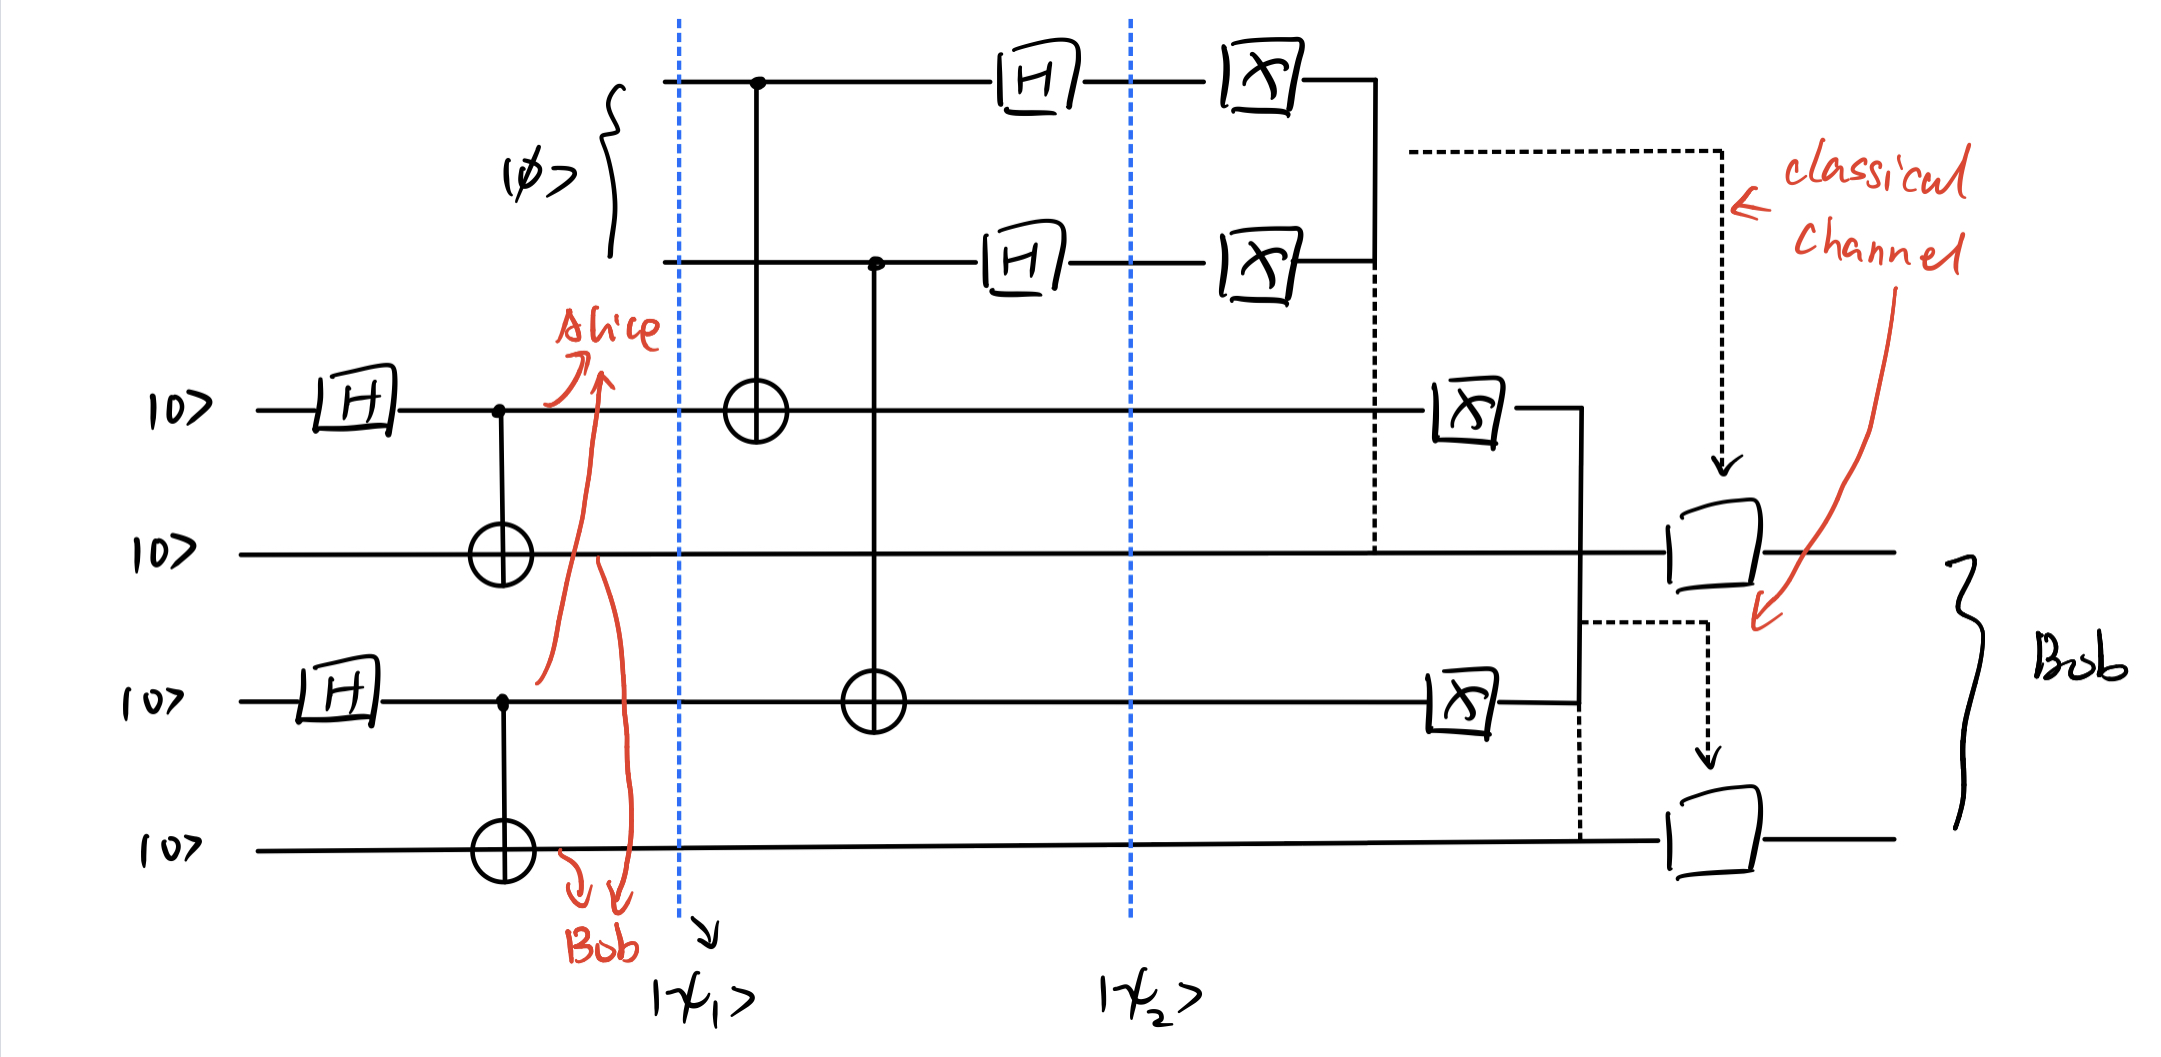 H
H
|ϕ⟩
classical
channel
Alice
|0⟩
H
|0⟩
|0⟩
H
|0⟩
Bob
Bob
|ψ₁⟩
|ψ₂⟩